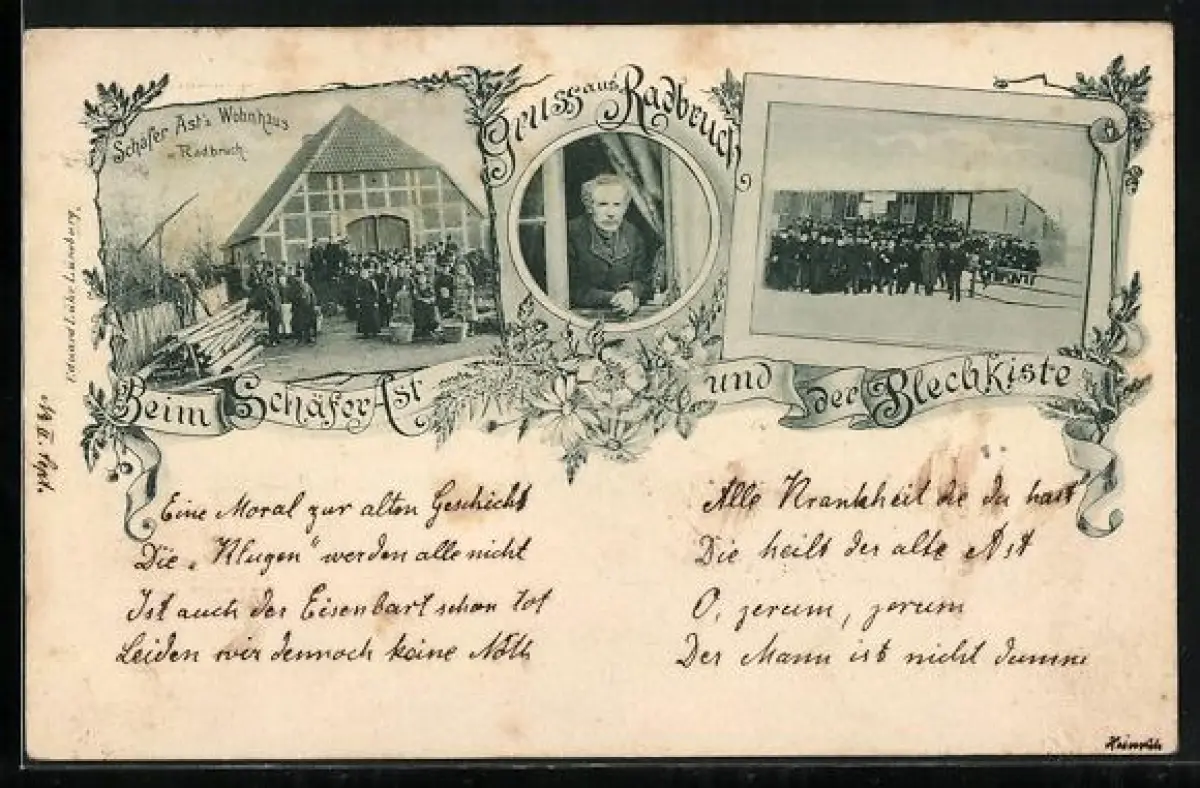 Schäfer Ast's Wohnhaus
i. Radbruch.
Gruss aus Radbruch
Beim Schäfer Ast und der Blechkiste
Eine Moral zur alten Geschicht
Die „Klugen“ werden alle nicht
Ist auch der Eisenbart schon tot
Leiden wir dennoch keine Nöth
Alle Krankheit die du hast
Die heilt der alte Ast
O, jerum, jerum
Der Mann ist nicht dumm
Heinrich
Eduard Lühr Lüneburg.